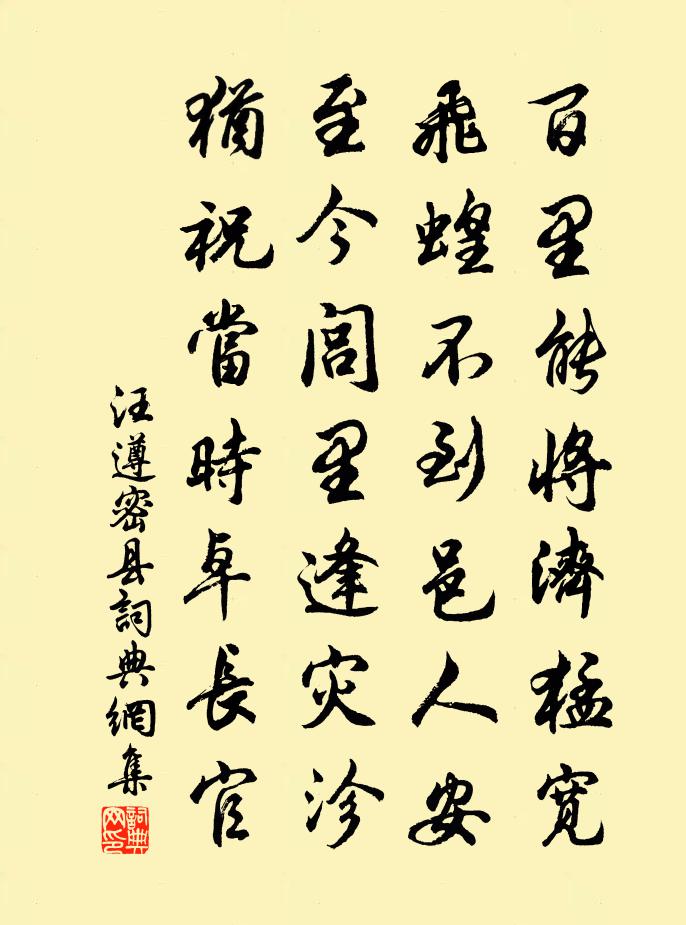 百里能將濟猛寬
飛蝗不到邑人安
至今閭里逢灾沴
猶祝當時卓長官
汪遵密县詞典網集
詞典網印